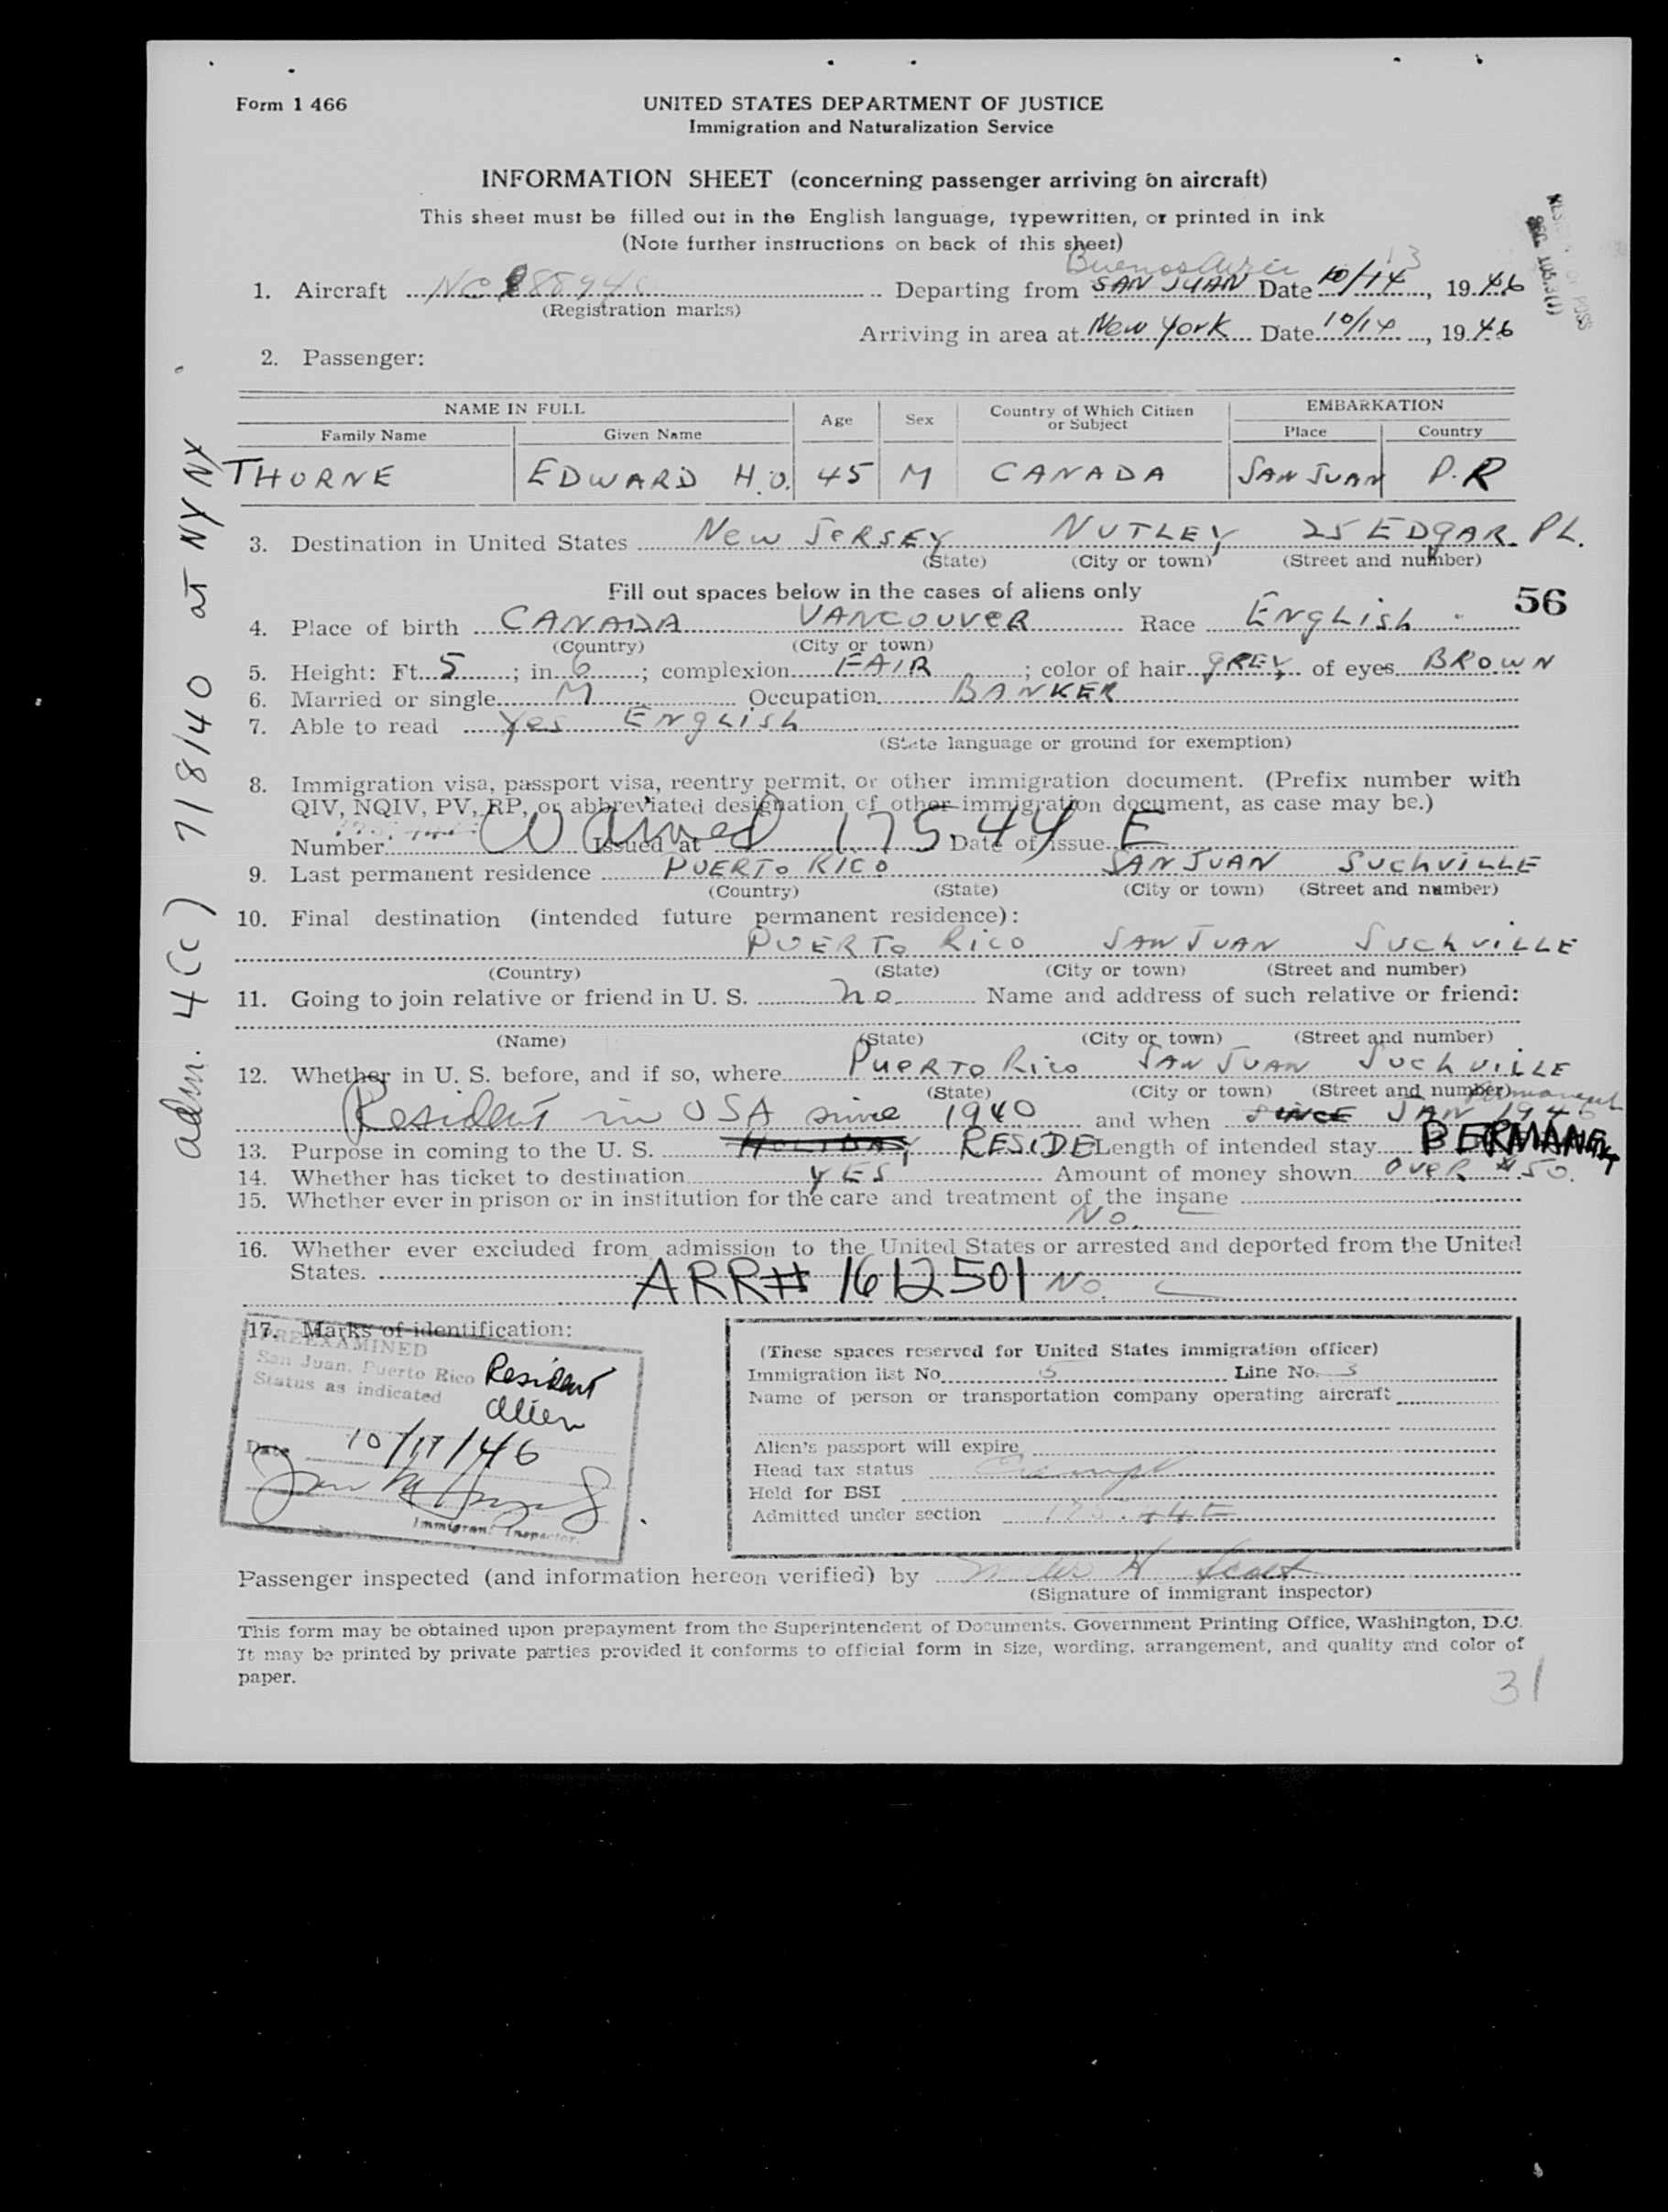 Form 1 466
UNITED STATES DEPARTMENT OF JUSTICE
Immigration and Naturalization Service
INFORMATION SHEET (concerning passenger arriving on aircraft)
This sheet must be filled out in the English language, typewritten, or printed in ink
(Note further instructions on back of this sheet)
Buenos Aires 13
1. Aircraft Departing from SAN JUAN Date 10/14, 1946
(Registration marks)
Arriving in area at New York Date 10/14, 1946
2. Passenger:
NAME IN FULL Age Sex Country of Which Citizen or Subject EMBARKATION
Family Name Given Name Place Country
THORNE EDWARD H.O. 45 M CANADA SAN JUAN P.R
3. Destination in United States New JERSEY NUTLEY, 25 EDgAR PL.
(State) (City or town) (Street and number)
Fill out spaces below in the cases of aliens only
56
4. Place of birth CANADA VANCOUVER Race ENgLish
(Country) (City or town)
5. Height: Ft. 5; in. 6; complexion FAIR; color of hair gREY, of eyes BROWN
6. Married or single M Occupation BANKER
7. Able to read Yes ENgLish
(State language or ground for exemption)
8. Immigration visa, passport visa, reentry permit, or other immigration document. (Prefix number with
QIV, NQIV, PV, RP, or abbreviated designation of other immigration document, as case may be.)
Waived 175.44 E
Number Issued at Date of issue
9. Last permanent residence PUERTO RICO SAN JUAN SUCHVILLE
(Country) (State) (City or town) (Street and number)
10. Final destination (intended future permanent residence):
PUERTO RICO SAN JUAN SUCHVILLE
(Country) (State) (City or town) (Street and number)
11. Going to join relative or friend in U. S. no Name and address of such relative or friend:
(Name) (State) (City or town) (Street and number)
12. Whether in U. S. before, and if so, where PUERTO RICO SAN JUAN SUCHVILLE
(State) (City or town) (Street and number)
permanent
Resident in USA since 1940 and when SINCE JAN 1946
13. Purpose in coming to the U. S. HOLIDAY, RESIDE Length of intended stay PERMANENT
14. Whether has ticket to destination YES Amount of money shown OVER $50.
15. Whether ever in prison or in institution for the care and treatment of the insane
NO.
16. Whether ever excluded from admission to the United States or arrested and deported from the United
States.
ARR# 1612501 NO.
17. Marks of identification:
REEXAMINED
San Juan, Puerto Rico
Status as indicated
Resident
alien
Date 10/17/46
Immigrant Inspector.
(These spaces reserved for United States immigration officer)
Immigration list No. 5 Line No. 3
Name of person or transportation company operating aircraft
Alien's passport will expire
Head tax status Exempt
Held for BSI
Admitted under section 175.44E
Passenger inspected (and information hereon verified) by
(Signature of immigrant inspector)
This form may be obtained upon prepayment from the Superintendent of Documents, Government Printing Office, Washington, D.C.
It may be printed by private parties provided it conforms to official form in size, wording, arrangement, and quality and color of
paper.
31
adm. 4(c) 7/8/40 at NY NY